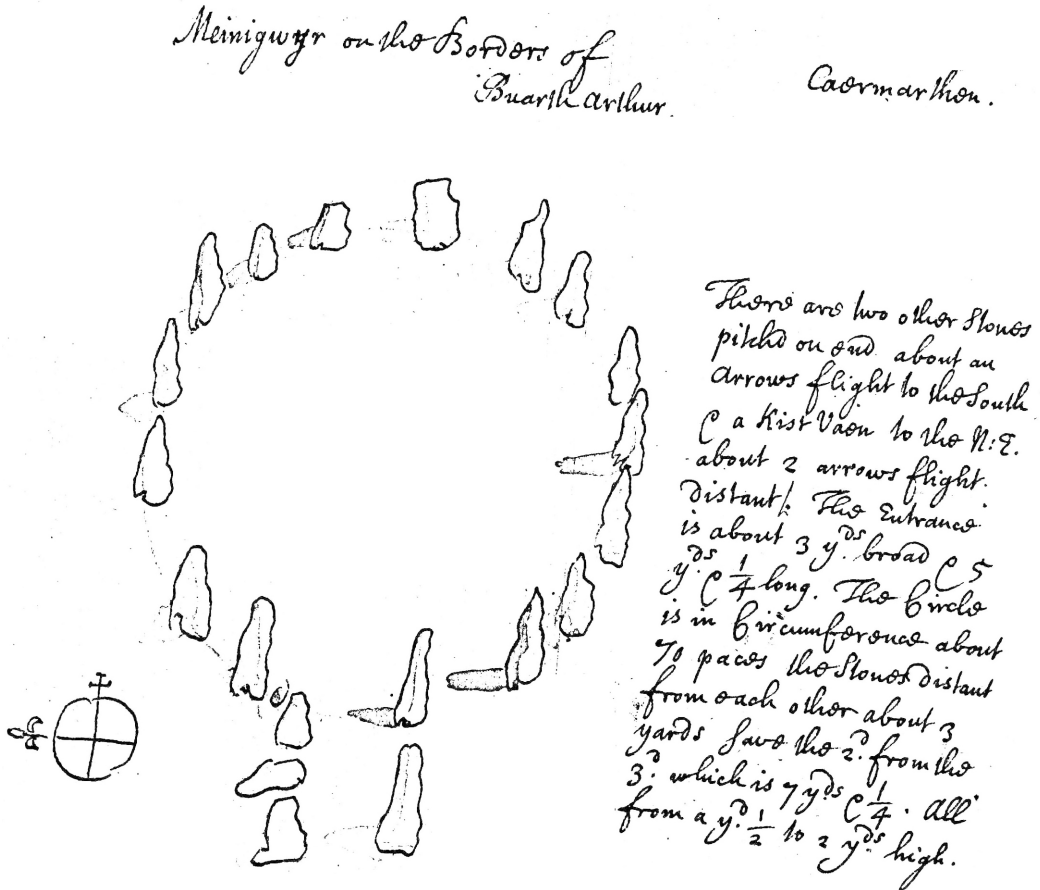 Meinigwyr on the Borders of
Buarth Arthur.
Caermarthen.
There are two other Stones
pitchd on end about an
Arrows flight to the South
& a Kist Vaen to the N:E.
about 2 arrows flight
distant/. The Entrance
is about 3 yds. broad & 5
yds. & 1/4 long. The Circle
is in Circumference about
70 paces the Stones distant
from each other about 3
yards save the 2d. from the
3d. which is 7 yds & 1/4. All
from a yd. 1/2 to 2 yds high.